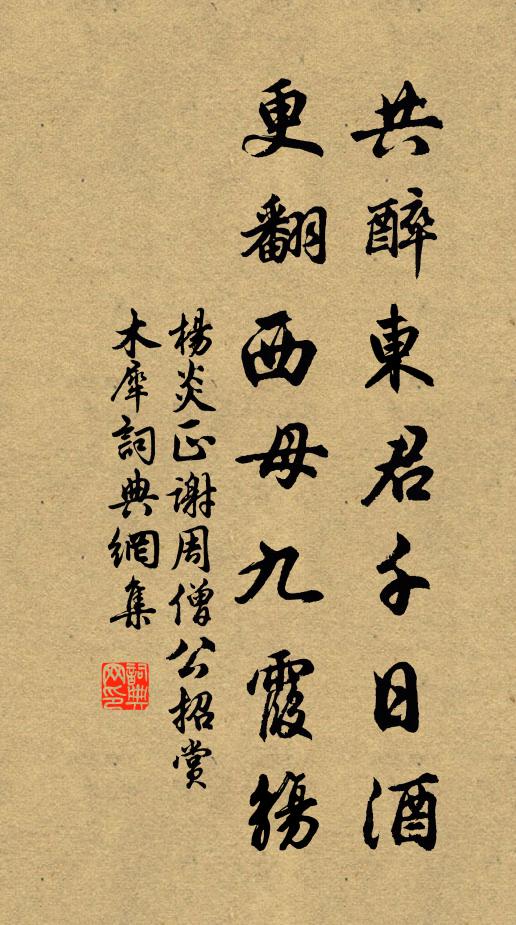 共醉東君千日酒
更翻西母九霞觴
楊炎正謝周僧公招賞
木犀詞典網集
詞典網印